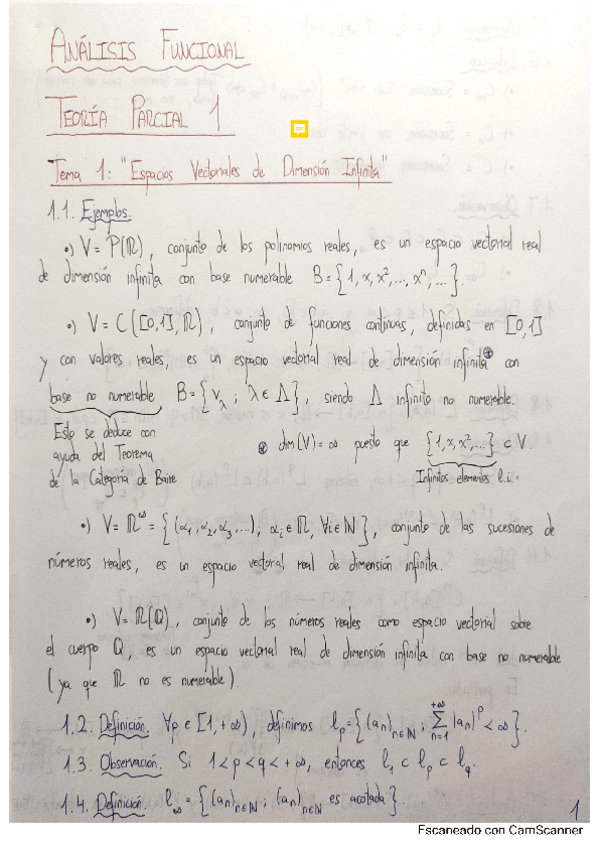 ANÁLISIS FUNCIONAL
TEORÍA PARCIAL 1
Tema 1: "Espacios Vectoriales de Dimensión Infinita"
1.1. Ejemplos.
•) V = P(ℝ), conjunto de los polinomios reales, es un espacio vectorial real
de dimensión infinita con base numerable B = {1, x, x², ..., xⁿ, ...}.
•) V = C([0,1], ℝ), conjunto de funciones continuas, definidas en [0,1]
y con valores reales, es un espacio vectorial real de dimensión infinita⊛ con
base no numerable B = {v_λ ; λ ∈ Λ}, siendo Λ infinito no numerable.
Esto se deduce con
ayuda del Teorema
de la Categoría de Baire
⊛ dim(V) = ∞ puesto que {1, x, x², ...} ⊂ V.
Infinitos elementos l.i.
•) V = ℝ^ω = {(α₁, α₂, α₃, ...), αᵢ ∈ ℝ, ∀i ∈ ℕ}, conjunto de las sucesiones de
números reales, es un espacio vectorial real de dimensión infinita.
•) V = ℝ(ℚ), conjunto de los números reales como espacio vectorial sobre
el cuerpo ℚ, es un espacio vectorial real de dimensión infinita con base no numerable
(ya que ℝ no es numerable).
1.2. Definición. ∀p ∈ [1, +∞), definimos l_p = {(aₙ)_{n∈ℕ} ; Σ_{n=1}^{+∞} |aₙ|^p < ∞}.
1.3. Observación. Si 1 < p < q < +∞, entonces l₁ ⊂ l_p ⊂ l_q.
1.4. Definición. l_∞ = {(aₙ)_{n∈ℕ} ; (aₙ)_{n∈ℕ} es acotada}.
1
Escaneado con CamScanner